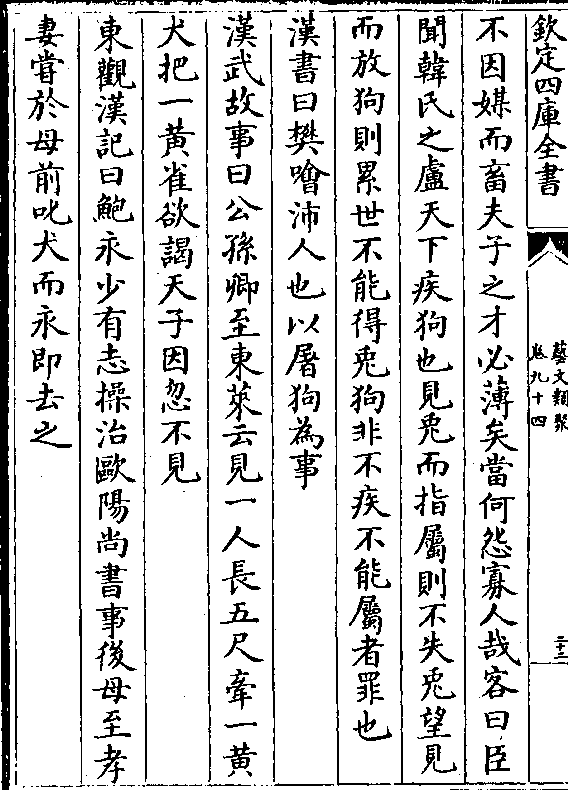 欽定四庫全書
藝文類聚
卷九十四
二十三
不因媒而畜夫子之才必薄矣當何怨寡人哉客曰臣
聞韓氏之盧天下疾狗也見兎而指屬則不失兎望見
而放狗則累世不能得兎狗非不疾不能屬者罪也
漢書曰樊噲沛人也以屠狗為事
漢武故事曰公孫卿至東萊云見一人長五尺牽一黄
犬把一黄雀欲謁天子因忽不見
東觀漢記曰鮑永少有志操治歐陽尚書事後母至孝
妻嘗於母前叱犬而永即去之